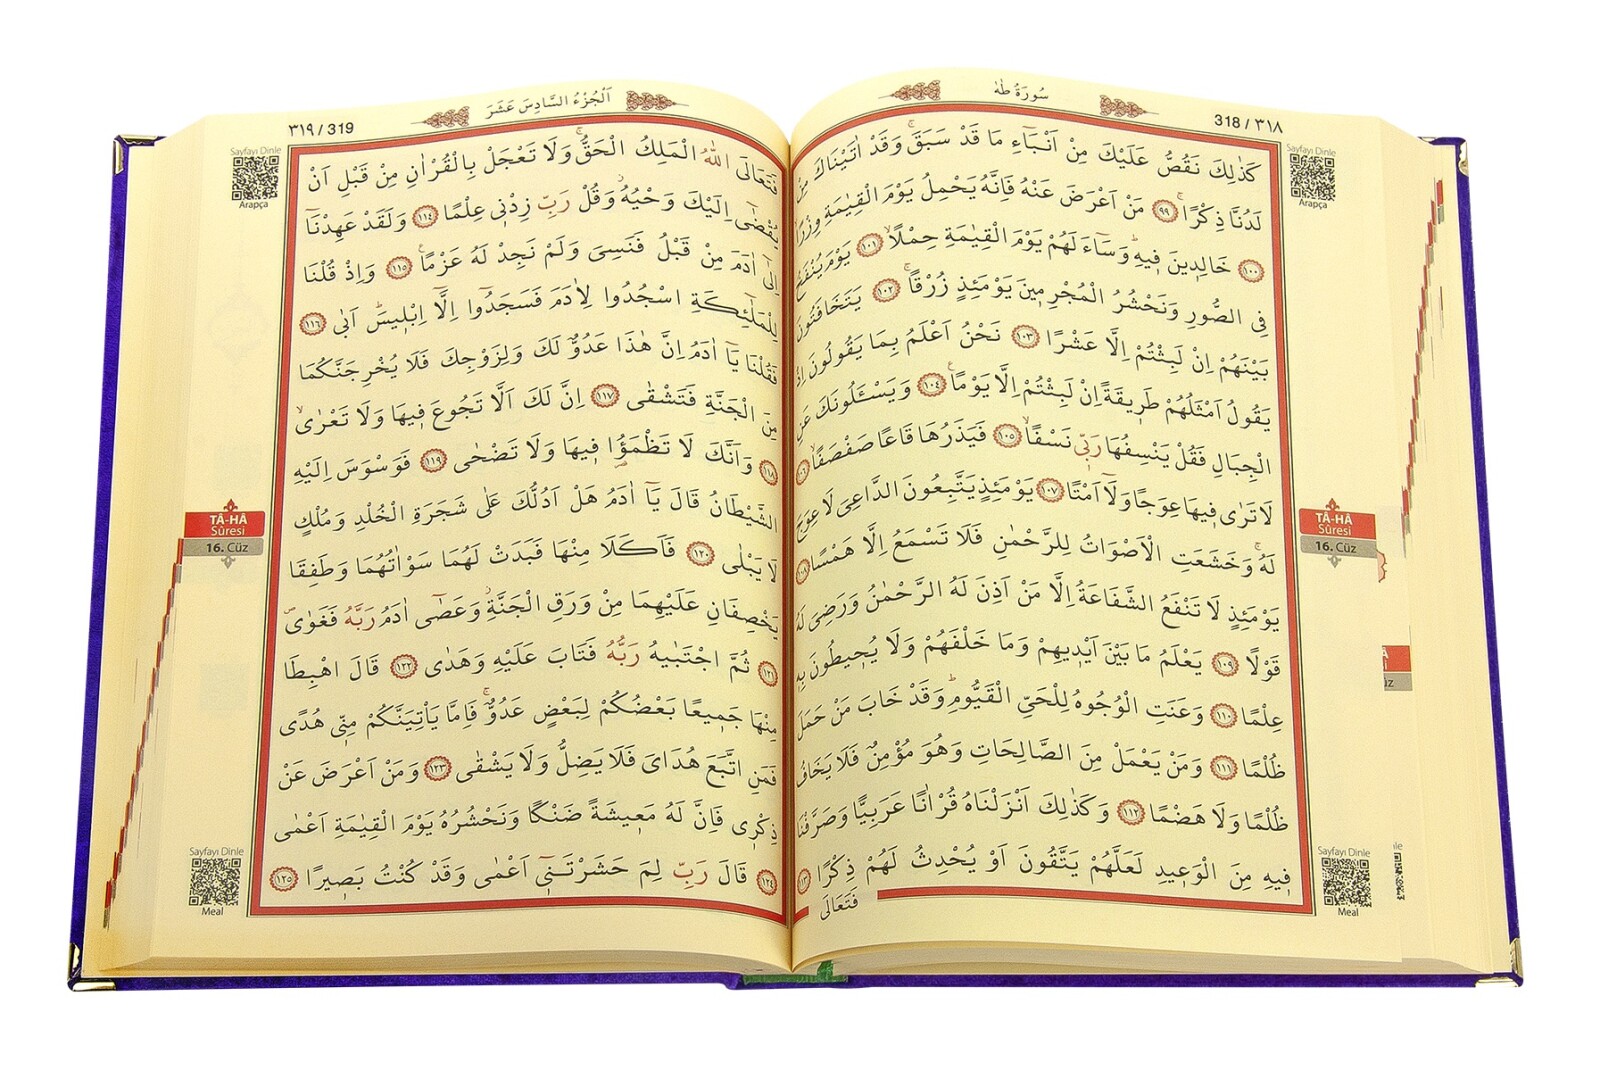 سُورَةُ طٰهٰ
318 / ٣١٨
Sayfayı Dinle
Arapça
كَذٰلِكَ نَقُصُّ عَلَيْكَ مِنْ اَنْبَٓاءِ مَا قَدْ سَبَقَۚ وَقَدْ اٰتَيْنَاكَ مِنْ
لَدُنَّا ذِكْرًاۚ ﴿٩٩﴾ مَنْ اَعْرَضَ عَنْهُ فَاِنَّهُ يَحْمِلُ يَوْمَ الْقِيٰمَةِ وِزْرًا
﴿١٠٠﴾ خَالِدٖينَ فٖيهِؕ وَسَٓاءَ لَهُمْ يَوْمَ الْقِيٰمَةِ حِمْلًاۙ ﴿١٠١﴾ يَوْمَ يُنْفَخُ
فِي الصُّورِ وَنَحْشُرُ الْمُجْرِمٖينَ يَوْمَئِذٍ زُرْقًاۚ ﴿١٠٢﴾ يَتَخَافَتُونَ
بَيْنَهُمْ اِنْ لَبِثْتُمْ اِلَّا عَشْرًا ﴿١٠٣﴾ نَحْنُ اَعْلَمُ بِمَا يَقُولُونَ اِذْ
يَقُولُ اَمْثَلُهُمْ طَرٖيقَةً اِنْ لَبِثْتُمْ اِلَّا يَوْمًاۚ ﴿١٠٤﴾ وَيَسْـَٔلُونَكَ عَنِ
الْجِبَالِ فَقُلْ يَنْسِفُهَا رَبّٖي نَسْفًاۙ ﴿١٠٥﴾ فَيَذَرُهَا قَاعًا صَفْصَفًاۙ ﴿١٠٦﴾
لَا تَرٰى فٖيهَا عِوَجًا وَلَٓا اَمْتًاؕ ﴿١٠٧﴾ يَوْمَئِذٍ يَتَّبِعُونَ الدَّاعِيَ لَا عِوَجَ
لَهُۚ وَخَشَعَتِ الْاَصْوَاتُ لِلرَّحْمٰنِ فَلَا تَسْمَعُ اِلَّا هَمْسًا ﴿١٠٨﴾
يَوْمَئِذٍ لَا تَنْفَعُ الشَّفَاعَةُ اِلَّا مَنْ اَذِنَ لَهُ الرَّحْمٰنُ وَرَضِيَ لَهُ
قَوْلًا ﴿١٠٩﴾ يَعْلَمُ مَا بَيْنَ اَيْدٖيهِمْ وَمَا خَلْفَهُمْ وَلَا يُحٖيطُونَ بِهٖ
عِلْمًا ﴿١١٠﴾ وَعَنَتِ الْوُجُوهُ لِلْحَيِّ الْقَيُّومِؕ وَقَدْ خَابَ مَنْ حَمَلَ
ظُلْمًا ﴿١١١﴾ وَمَنْ يَعْمَلْ مِنَ الصَّالِحَاتِ وَهُوَ مُؤْمِنٌ فَلَا يَخَافُ
ظُلْمًا وَلَا هَضْمًا ﴿١١٢﴾ وَكَذٰلِكَ اَنْزَلْنَاهُ قُرْاٰنًا عَرَبِيًّا وَصَرَّفْنَا
فٖيهِ مِنَ الْوَعٖيدِ لَعَلَّهُمْ يَتَّقُونَ اَوْ يُحْدِثُ لَهُمْ ذِكْرًا ﴿١١٣﴾
فَتَعَالَى
TÂ-HÂ
Sûresi
16. Cüz
Sayfayı Dinle
Meal
اَلْجُزْءُ السَّادِسَ عَشَرَ
٣١٩ / 319
Sayfayı Dinle
Arapça
فَتَعَالَى اللّٰهُ الْمَلِكُ الْحَقُّۚ وَلَا تَعْجَلْ بِالْقُرْاٰنِ مِنْ قَبْلِ اَنْ
يُقْضٰٓى اِلَيْكَ وَحْيُهُؗ وَقُلْ رَبِّ زِدْنٖي عِلْمًا ﴿١١٤﴾ وَلَقَدْ عَهِدْنَٓا
اِلٰٓى اٰدَمَ مِنْ قَبْلُ فَنَسِيَ وَلَمْ نَجِدْ لَهُ عَزْمًاۚ ﴿١١٥﴾ وَاِذْ قُلْنَا
لِلْمَلٰٓئِكَةِ اسْجُدُوا لِاٰدَمَ فَسَجَدُٓوا اِلَّٓا اِبْلٖيسَؕ اَبٰى ﴿١١٦﴾
فَقُلْنَا يَٓا اٰدَمُ اِنَّ هٰذَا عَدُوٌّ لَكَ وَلِزَوْجِكَ فَلَا يُخْرِجَنَّكُمَا
مِنَ الْجَنَّةِ فَتَشْقٰى ﴿١١٧﴾ اِنَّ لَكَ اَلَّا تَجُوعَ فٖيهَا وَلَا تَعْرٰىۙ
﴿١١٨﴾ وَاَنَّكَ لَا تَظْمَؤُ۬ا فٖيهَا وَلَا تَضْحٰى ﴿١١٩﴾ فَوَسْوَسَ اِلَيْهِ
الشَّيْطَانُ قَالَ يَٓا اٰدَمُ هَلْ اَدُلُّكَ عَلٰى شَجَرَةِ الْخُلْدِ وَمُلْكٍ
لَا يَبْلٰى ﴿١٢٠﴾ فَاَكَلَا مِنْهَا فَبَدَتْ لَهُمَا سَوْاٰتُهُمَا وَطَفِقَا
يَخْصِفَانِ عَلَيْهِمَا مِنْ وَرَقِ الْجَنَّةِؗ وَعَصٰٓى اٰدَمُ رَبَّهُ فَغَوٰىۖ
﴿١٢١﴾ ثُمَّ اجْتَبٰيهُ رَبُّهُ فَتَابَ عَلَيْهِ وَهَدٰى ﴿١٢٢﴾ قَالَ اهْبِطَا
مِنْهَا جَمٖيعًا بَعْضُكُمْ لِبَعْضٍ عَدُوٌّۚ فَاِمَّا يَأْتِيَنَّكُمْ مِنّٖي هُدًى
فَمَنِ اتَّبَعَ هُدَايَ فَلَا يَضِلُّ وَلَا يَشْقٰى ﴿١٢٣﴾ وَمَنْ اَعْرَضَ عَنْ
ذِكْرٖي فَاِنَّ لَهُ مَعٖيشَةً ضَنْكًا وَنَحْشُرُهُ يَوْمَ الْقِيٰمَةِ اَعْمٰى
﴿١٢٤﴾ قَالَ رَبِّ لِمَ حَشَرْتَنٖٓي اَعْمٰى وَقَدْ كُنْتُ بَصٖيرًا ﴿١٢٥﴾
TÂ-HÂ
Sûresi
16. Cüz
Sayfayı Dinle
Meal